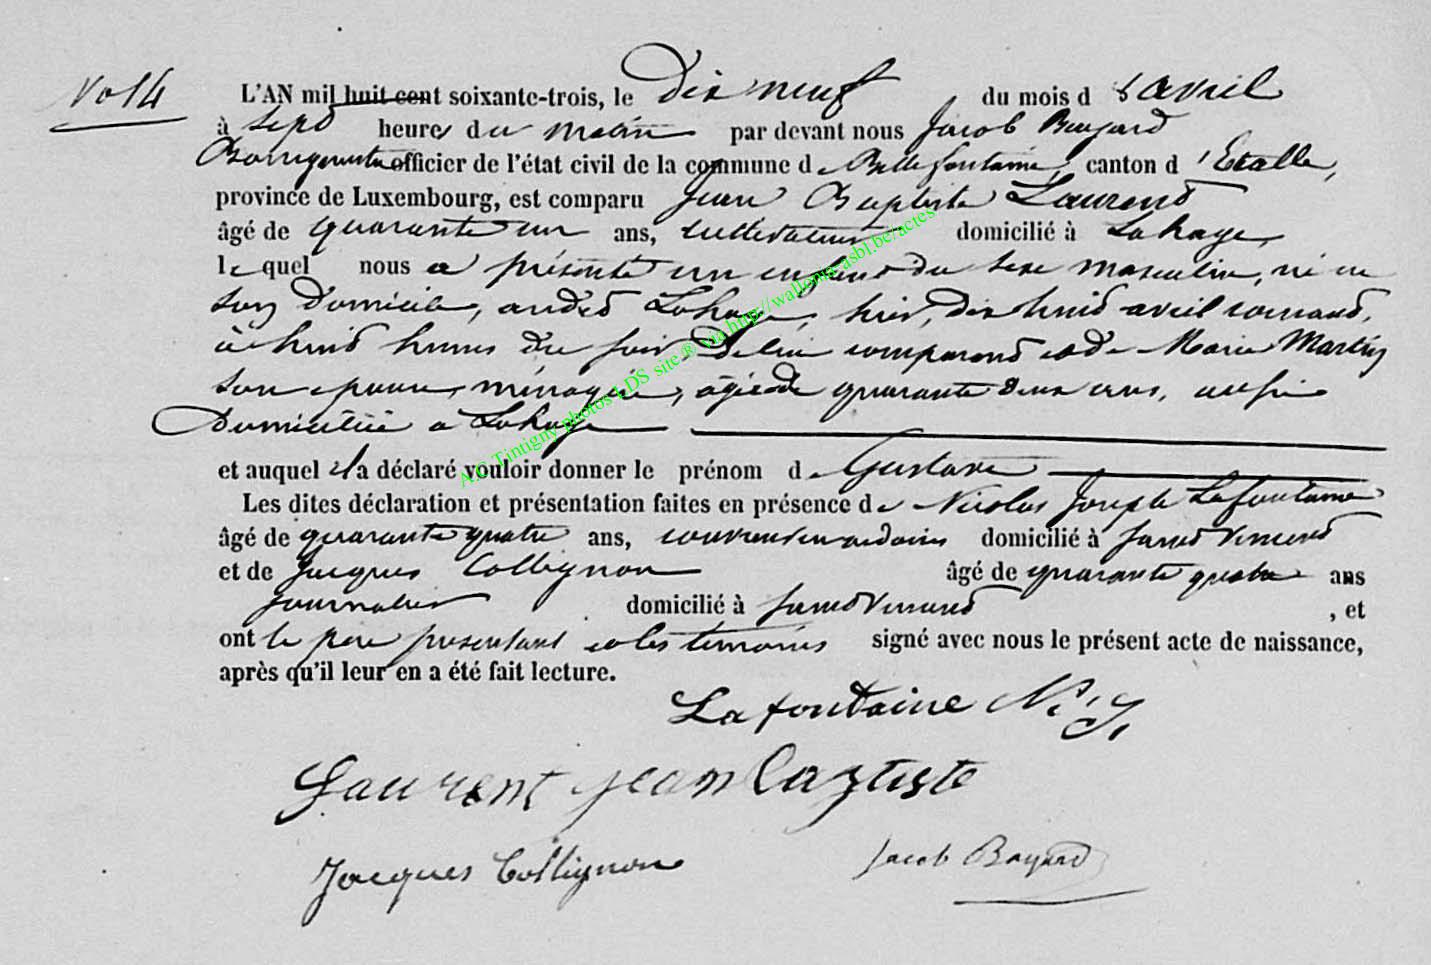 No 14
L'AN mil huit cent soixante-trois, le Dix neuf du mois d'avril
à sept heures du matin par devant nous Jacob Bayard
Bourgmestre officier de l'état civil de la commune de Bellefontaine, canton d'Etalle,
province de Luxembourg, est comparu Jean Baptiste Laurent
âgé de quarante un ans, cultivateur domicilié à Lahage,
lequel nous a présenté un enfant du sexe masculin, né en
son Domicile, audit Lahage, hier, dix huit avril courant,
à huit heures du soir, De lui comparant et de Marie Martin
son epouse, ménagère, âgée de quarante deux ans, aussi
Domiciliée à Lahage
et auquel il a déclaré vouloir donner le prénom de Gustave
Les dites déclaration et présentation faites en présence de Nicolas Joseph Lafontaine
âgé de quarante quatre ans, domicilié à Saint Vincent
et de Jacques Collignon âgé de quarante quatre ans
journalier domicilié à Saint Vincent, et
ont le père présentant et les témoins signé avec nous le présent acte de naissance,
après qu'il leur en a été fait lecture.
Lafontaine N. J.
Laurent jean baptiste
Jacques Collignon Jacob Bayard
A.C Tintigny photos LDS site ® via http://wallonia-asbl.be/actes